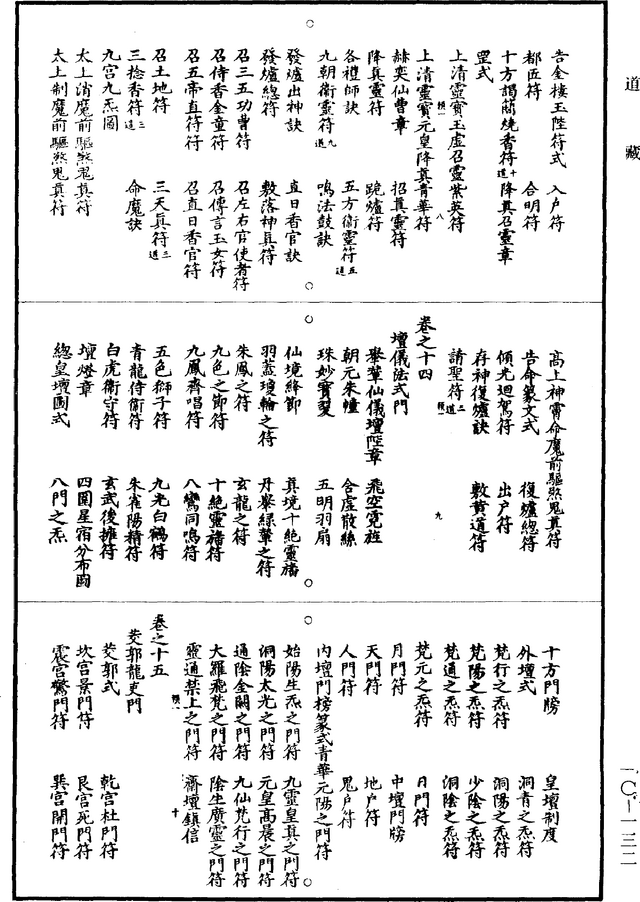 道藏
告金樓玉陛符式 入戶符
都匠符 合明符
十方謁簡燒香符十道 降真召靈章
罡式
上清靈寶玉虛召靈紫英符
上清靈寶元皇降真青華符
赫奕仙曹章 招真靈符
降真靈符 跪爐符
各禮師訣 五方衞靈符五道
九朝衞靈符九道 鳴法鼓訣
發爐出神訣 直日香官訣
發爐總符 敷落神真符
召三五功曹符 召左右官使者符
召侍香金童符 召傳言玉女符
召五帝直符符 召直日香官符
召土地符 三天真符三道
三捻香符三道 命魔訣
九宫九炁圖
太上消魔前驅煞鬼真符
太上制魔前驅煞鬼真符
高上神霄命魔前驅煞鬼真符
告命篆文式 復爐總符
傾光迴駕符 出戶符
存神復爐訣 敷黄道符
請聖符二道
卷之十四
壇儀法式門
舉輦仙儀壇陛章 飛空寛旌
朝元朱幢 合虛散絲
珠妙寶翣 五明羽扇
仙境絳節 真境十絶靈旛
羽蓋瓊輪之符 丹轝緑輦之符
朱鳳之符 玄龍之符
九色之節符 十絶靈旛符
九鳳齊唱符 八鸞同鳴符
五色獅子符 九光白鶴符
青龍侍衞符 朱雀陽精符
白虎衞守符 玄武後擁符
壇燈章 四圍星宿分布圖
總皇壇圖式 八門之炁
十方門牓 皇壇制度
外壇式 洞青之炁符
梵行之炁符 洞陽之炁符
梵陽之炁符 少陰之炁符
梵通之炁符 洞陰之炁符
梵元之炁符 日門符
月門符 中壇門牓
天門符 地戶符
人門符 鬼戶符
内壇門榜篆式青華元陽之門符
始陽生炁之門符 九靈皇真之門符
洞陽太光之門符 元皇高晨之門符
通陰金闕之門符 九仙梵行之門符
大羅飛梵之門符 陰生廣靈之門符
靈通禁上之門符 齋壇鎮信
卷之十五
茭郭龍吏門
茭郭式 乾宮杜門符
坎宮景門符 艮宮死門符
震宮驚門符 巽宮開門符
一〇—一三二